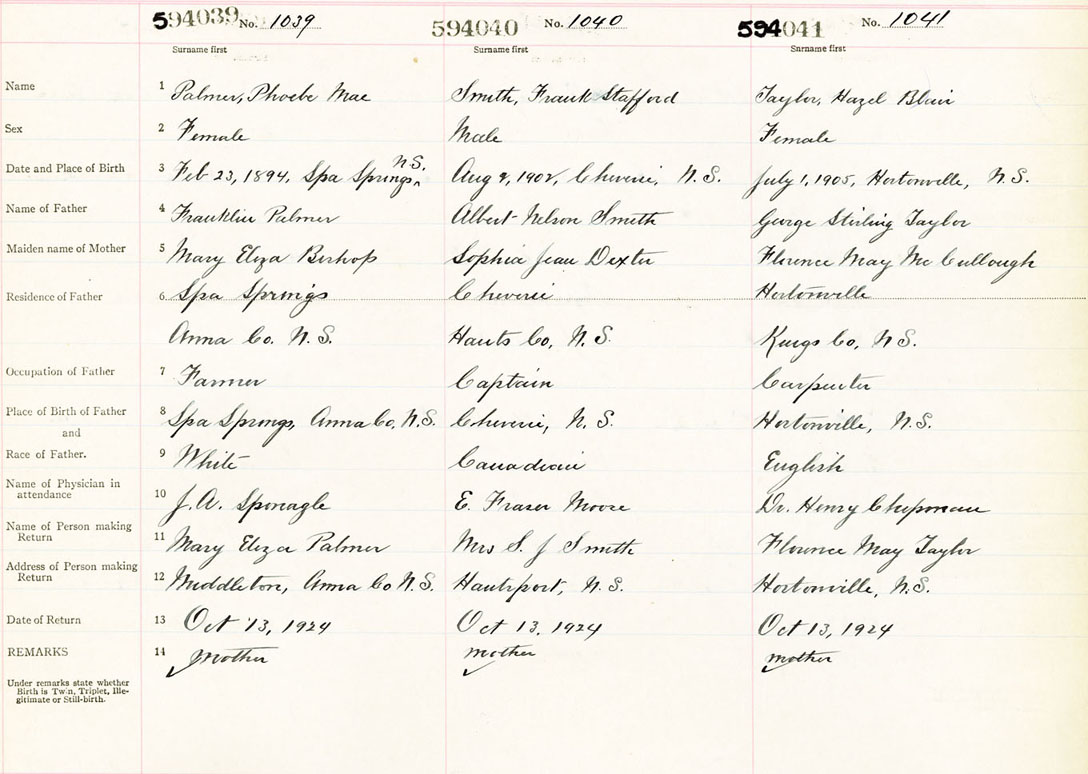 594039 No. 1039 594040 No. 1040 594041 No. 1041
Surname first Surname first Surname first
Name 1 Palmer, Phoebe Mae Smith, Frank Stafford Taylor, Hazel Blair
Sex 2 Female Male Female
N.S.
Date and Place of Birth 3 Feb 23, 1894, Spa Springs, Aug 9, 1902, Cheverie, N.S. July 1, 1905, Hortonville, N.S.
Name of Father 4 Franklin Palmer Albert Nelson Smith George Stirling Taylor
Maiden name of Mother 5 Mary Eliza Bishop Sophia Jean Dexter Florence May McCullough
Residence of Father 6 Spa Springs Cheverie Hortonville
Anna Co. N.S. Hants Co, N.S. Kings Co, N.S.
Occupation of Father 7 Farmer Captain Carpenter
Place of Birth of Father 8 Spa Springs, Anna Co, N.S. Cheverie, N.S. Hortonville, N.S.
and
Race of Father. 9 White Canadian English
Name of Physician in
attendance 10 J.A. Sponagle E. Fraser Moore Dr. Henry Chipman
Name of Person making
Return 11 Mary Eliza Palmer Mrs S. J Smith Florence May Taylor
Address of Person making
Return 12 Middleton, Anna Co N.S. Hantsport, N.S. Hortonville, N.S.
Date of Return 13 Oct 13, 1924 Oct 13, 1924 Oct 13, 1924
REMARKS 14 Mother mother mother
Under remarks state whether
Birth is Twin, Triplet, Ille-
gitimate or Still-birth.